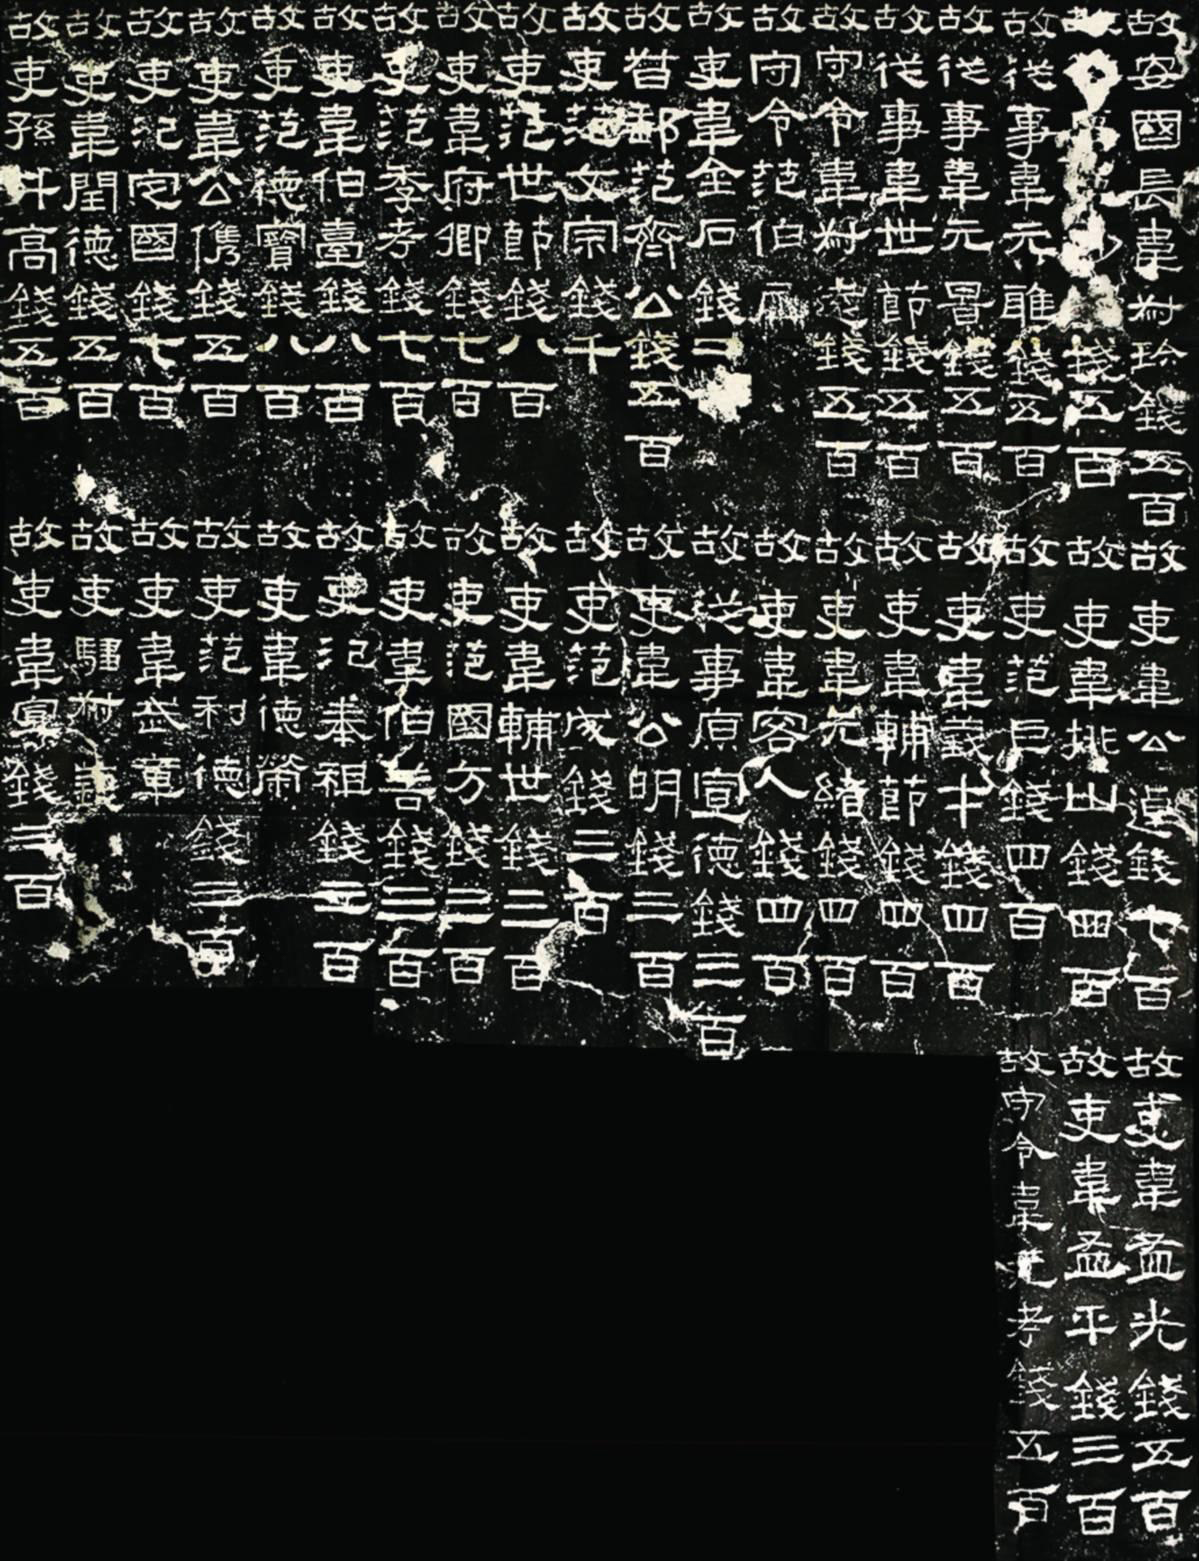 故安國長韋叔珍錢五百
故錢五百
故從事韋元雕錢五百
故從事韋元景錢五百
故從事韋世節錢五百
故守令韋叔遠錢五百
故守令范伯犀
故吏韋金石錢二
故督郵范齊公錢五百
故吏范文宗錢千
故吏范世節錢八百
故吏韋府卿錢七百
故吏范季考錢七百
故吏韋伯臺錢八百
故吏范德寶錢八百
故吏韋公儁錢五百
故吏氾定國錢七百
故吏韋閏德錢五百
故吏孫升高錢五百
故吏韋公逴錢七百
故吏韋排山錢四百
故吏范巨錢四百
故吏韋義才錢四百
故吏韋輔節錢四百
故吏韋元緒錢四百
故吏韋容人錢四百
故從事原宣德錢三百
故吏韋公明錢三百
故吏范成錢三百
故吏韋輔世錢三百
故吏范國方錢三百
故吏韋伯善錢三百
故吏氾奉祖錢三百
故吏韋德榮
故吏范利德錢三百
故吏韋武章
故吏騶叔義
故吏韋宣錢三百
故吏韋孟光錢五百
故吏韋孟平錢三百
故守令韋元考錢五百